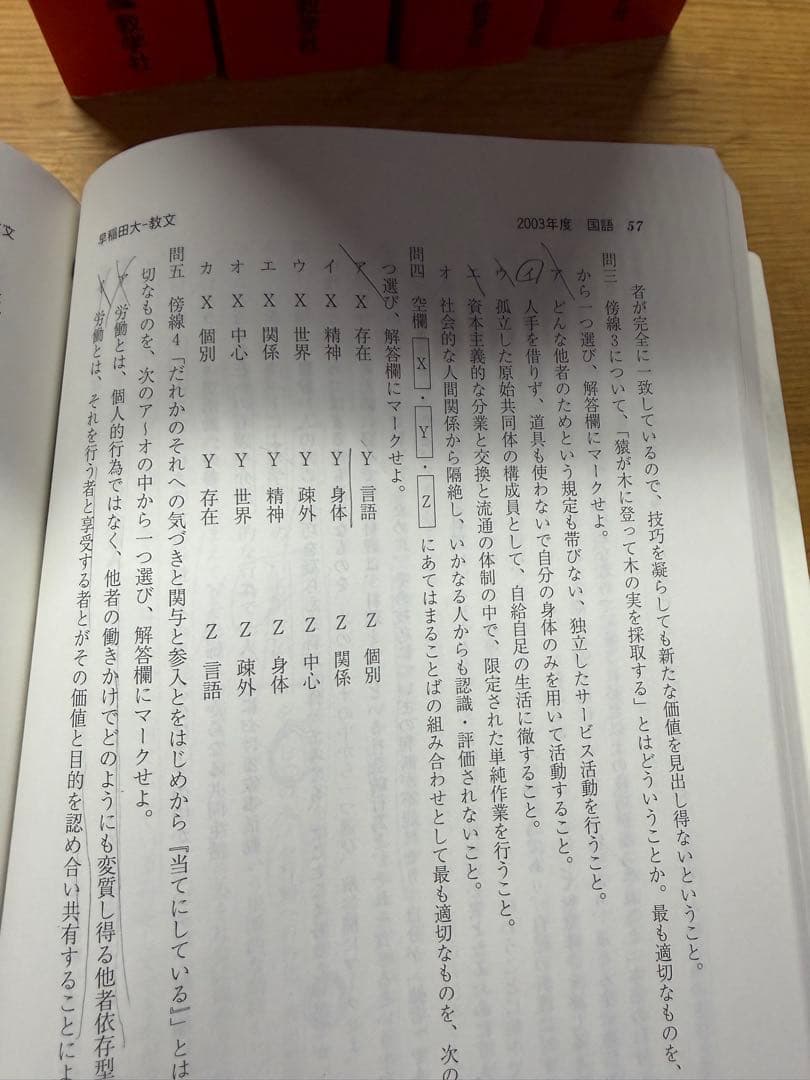 教学社
教学社
早稲田大-教文
2003年度 国語 57
者が完全に一致しているので、技巧を凝らしても新たな価値を見出し得ないということ。
問三 傍線3について、「猿が木に登って木の実を採取する」とはどういうことか。最も適切なものを、
から一つ選び、解答欄にマークせよ。
ア どんな他者のためという規定も帯びない、独立したサービス活動を行うこと。
イ 人手を借りず、道具も使わないで自分の身体のみを用いて活動すること。
ウ 孤立した原始共同体の構成員として、自給自足の生活に徹すること。
エ 資本主義的な分業と交換と流通の体制の中で、限定された単純作業を行うこと。
オ 社会的な人間関係から隔絶し、いかなる人からも認識・評価されないこと。
問四 空欄 X ・ Y ・ Z にあてはまることばの組み合わせとして最も適切なものを、次の
つ選び、解答欄にマークせよ。
ア X 存在 Y 言語 Z 個別
イ X 精神 Y 身体 Z 関係
ウ X 世界 Y 疎外 Z 中心
エ X 関係 Y 精神 Z 身体
オ X 中心 Y 世界 Z 疎外
カ X 個別 Y 存在 Z 言語
問五 傍線4「だれかのそれへの気づきと関与と参入とをはじめから『当てにしている』」とは
切なものを、次のア〜オの中から一つ選び、解答欄にマークせよ。
ア 労働とは、個人的行為ではなく、他者の働きかけでどのようにも変質し得る他者依存型
労働とは、それを行う者と享受する者とがその価値と目的を認め合い共有することによ